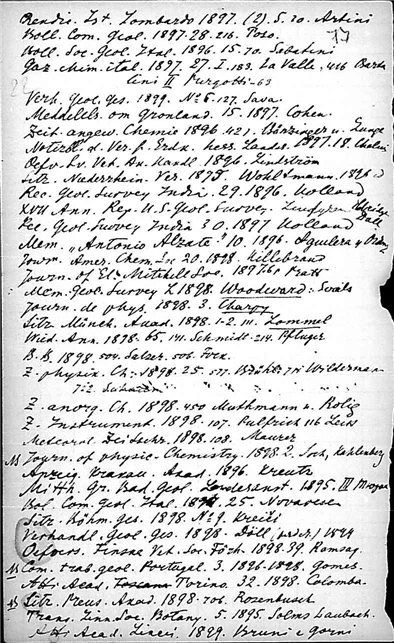 Rendic. Ist. Lombardo 1897. (2). 5. 30. Artini
Boll. Com. geol. 1897. 28. 216. Toso.
Boll. Soc. Geol. Ital. 1896. 15. 70. Sabatini
Gaz. chim. ital. 1897. 27. I. 183. La Valle, 416 Barta
lini II Purgotti - 63
Verh. Geol. ges. 1899. No 6. 127. Sava
Meddelels om Gronland. 15. 1897. Cohen.
Zeit. angew. Chemie 1896. 421. u. Lunge
Notizbl. d. Ver. f. Erdk. hess. Landes. 1897. 18. Chelius
Ofv. Sv. Vet. Ak. Handl. 1896. Lindström
Sitz. Niederrhein. Ver. 1895. Wohltmann. 1896. id
Rec. Geol. Survey India 29. 1896. Holland
XVII Ann. Rep. U.S. Geol. Survey. Lindgren
Ball
Rec. Geol. Survey India 30. 1897 Holland
Mem. "Antonio Alzate" 10. 1896. Aguilera y Ordoñ
Journ. Amer. Chem. Soc 20. 1898. Hillebrand
Journ. of El. Mitchell Soc. 1897. Pratt
Mem. Geol. Survey 1898. Woodward:
Journ. de phys. 1898. 3. Charpy
Sitz. Münch. Akad. 1898. 1-2. 111. Lommel
Wied. Ann. 1898. 65. 141. Schmidt. 214. Pflüger
B. B. 1898. 504. Salzer. 506. Fock.
Z. physik. Ch. 1898. 25. 577. Brühl Wilderman
712
Z. anorg. Ch. 1898. 450 Muthmann u. Rolig
Z. Instrument. 1898. 107. Pulfrich 116 Leiss
Meteorol. Zeitschr. 1898. 108. Maurer
Journ. of physic. Chemistry. 1898. 2. Kahlenberg
Anzeig. Krakau. Akad. 1896. Kreutz
Mitth. Gr. Bad. geol. Landesanst. 1895. III
Bol. Com. geol. Ital. 25. Novarese
Sitz. Böhm. ges. 1898. No 9.
Verhandl. Geol. Ges. 1898. Döll 1894
Oefvers. Finska Vet. Soc. Förh. 1898. 39. Ramsay.
Com. trab. geol. Portugal. 3. 1896-1898. Gomes.
Atti Acad. Torino. 32. 1898. Colomba.
Sitz. Preus. Akad. 1898. 706. Rosenbusch
Trans. Linn. Soc. Botany. 5. 1895. Solms Laubach.
Atti Acad. Lincei. 1899. Bruni e Gorni